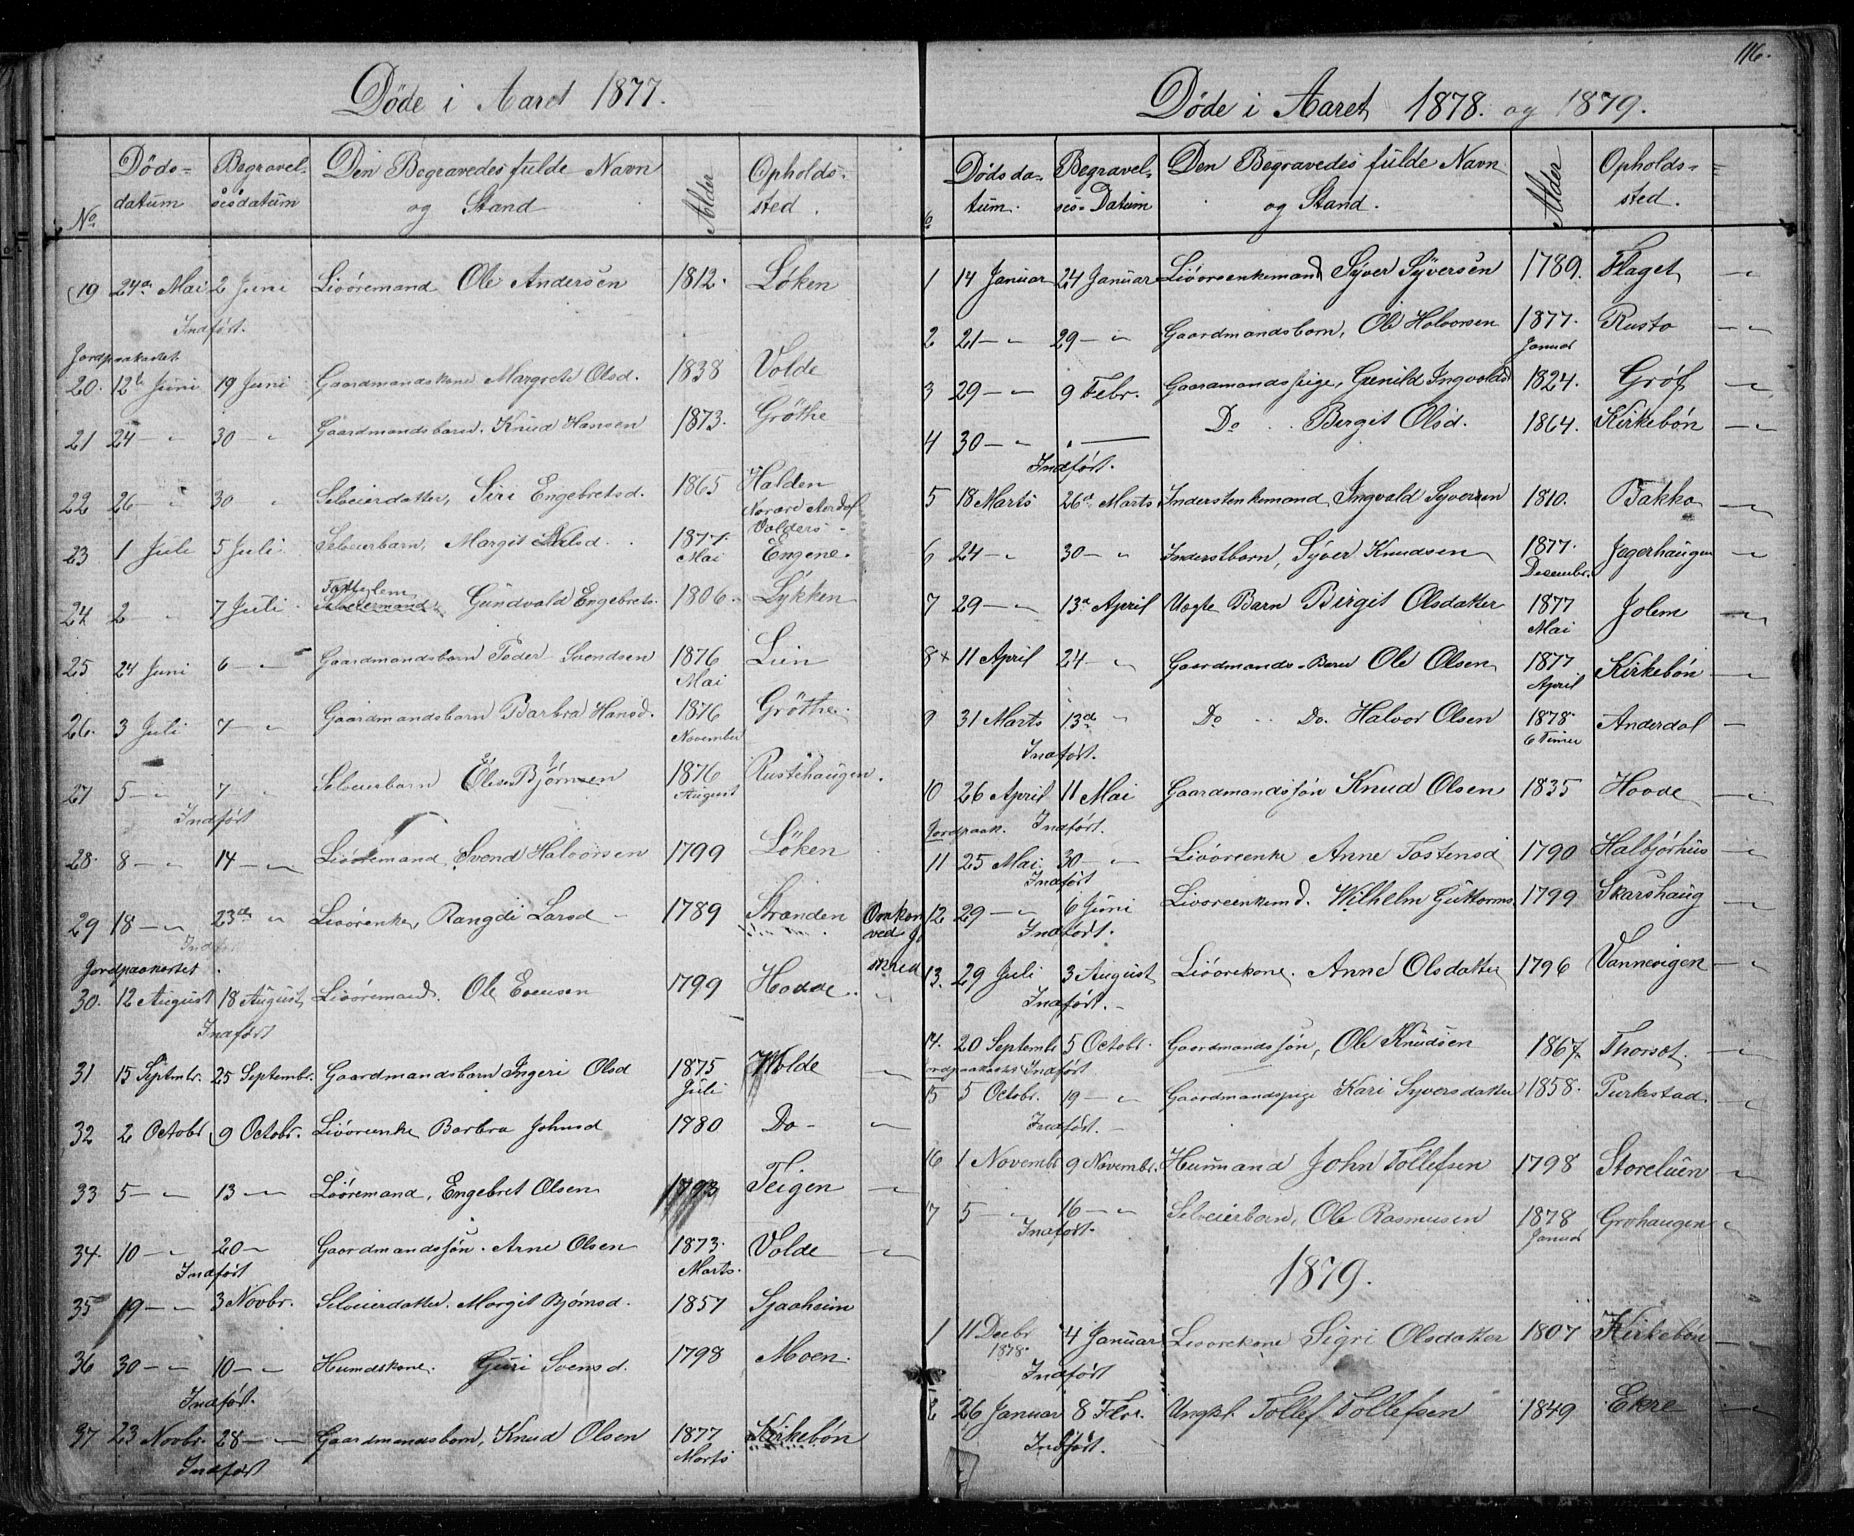 116.
Döde i Aaret 1877.
No Döds-datum Begravel-sesdatum Den Begravedes fulde Navn og Stand Alder Opholds-sted.
19 24de Mai 2 Juni Livöremand Ole Andersen 1812. Löken
Indfört.
Jordpaakastet
20. 12te Juni 19 Juni Gaardmandskone Margrete Olsd. 1838 Volde
21 24 — " 30 — " Gaardmandsbarn. Knud Hansen 1873. Gröthe
22 26 — " 30 " Selveierdatter, Siri Engebretsd. 1865 Halden
Valders
23 1 Juli 5 Juli Selveierbarn, Margit Nilsd. 1877. Mai Engene.
24 2 " 7 Juli Fattiglem Selveiermand Gundvald Engebrets. 1806. Lykken
25 24 Juni 6 — " Gaardmandsbarn Peder Svendsen 1876 Mai Lien
26. 3 Juli 7 — " Gaardmandsbarn Barbra Hansd. 1876 November Gröthe.
27 5 — " 7 " Selveierbarn Björnsen 1876 August Rustehaugen.
Indfört
28. 8 — " 14 — " Livöremand Svend Halvorsen 1799 Löken
29 18 — " 23de " Livörenke, Rangdi Larsd — 1789 Stranden Omkom ved
Indfört
Jordpaakastet
30. 12 August 18 August Livöremand. Ole Evensen 1799 Hovde.
Indfört
31 15 Septmbr. 25 Septembr. Gaardmandsbarn Ingeri Olsd 1875 Juli Volde
32 2 Octobr 9 Octobr. Livöreenke Barbra Johnsd 1780 Do -
33 5 — " 13 — " Livöremand, Engebret Olsen 1793 Teigen
34. 10 — " 20 — Gaardmandssön. Arne Olsen 1873. Marts. Volde
Indfört
35 19 — " 3 Novbr. Selveierdatter. Margit Björnsd. 1857 Sjaaheim
36 30 — " 10 — " Huusmdskone. Guri Svensd. 1798 Moen.
Indfört.
37 23 Novbr. 28 — " Gaardmandsbarn, Knud Olsen 1877 Marts Kirkebön
Indfört
Döde i Aaret 1878. og 1879.
Dödsda-tum. Begravel-ses-Datum Den Begravedes fulde Navn og Stand. Alder Opholds-sted.
1 14 Januar 24 Januar Livöreenkemand Syver Syversen 1789. Flaget
2 21 — " 29 — " Gaardmandsbarn, Ole Halvorsen 1877. Januar Rusto
3 29 — " 9 Febr. Gaardmandspige, Gunild Ingvoldsd 1824. Gröf
4 30 — " — Do " Bergit Olsd. 1864. Kirkebön
Indfört.
5 18 Marts 26de Marts Inderstenkemand Ingvald Syversen 1810. Bakko
6 24 — " 30 — " Inderstbarn, Syver Knudsen 1877. Desembr. Jagerhaugen
7 29 — " 13de April Uægte Barn Birgit Olsdatter 1877 Mai Jolem
8 11 April 24 — " Gaardmands-Barn Ole Olsen 1877 April Kirkebön
9 31 Marts 13de " Do " Do. Halvor Olsen 1878. 6 Timer Anderdal
Indfört.
10 26 April 11 Mai Gaardmandssön Knud Olsen 1835 Hovde
Jordpaak. Indfört.
11 25 Mai. 30 — " Livöreenke Anne Tostensd 1790 Halbjörhus
Indfört
12 29 — " 6 Juni Livöreenkemd. Wilhelm Guttorms. 1799 Skarshaug
Indfört.
13. 29 Juli 3 August Livörekone. Anne Olsdatter 1796 Vannevigen
Indfört. -
14. 20 Septembr 5 Octobr. Gaardmandssön, Ole Knudsen 1867. Thorsöt.
ordpaakastet Indfört
15 5 Octobr. 19 — " Gaardmandspige Kari Syversdatter 1858. Turkestad.
Indfört. -
16 1 Novembr 9 Novembr. Huusmand John Tollefsen 1798 Storeluen
17 5 — " 16 — " Selveierbarn, Ole Rasmusen 1878 Januar Grohaugen
Indfört.
1879.
1 11 Decbr 1878. 4 Januar Livörekone Sigri Olsdatter 1807 Kirkebön
Indfört
2 26 Januar 8 Febr. Ungkl. Tollef Tollefsen 1849 Ekre
Indfört.